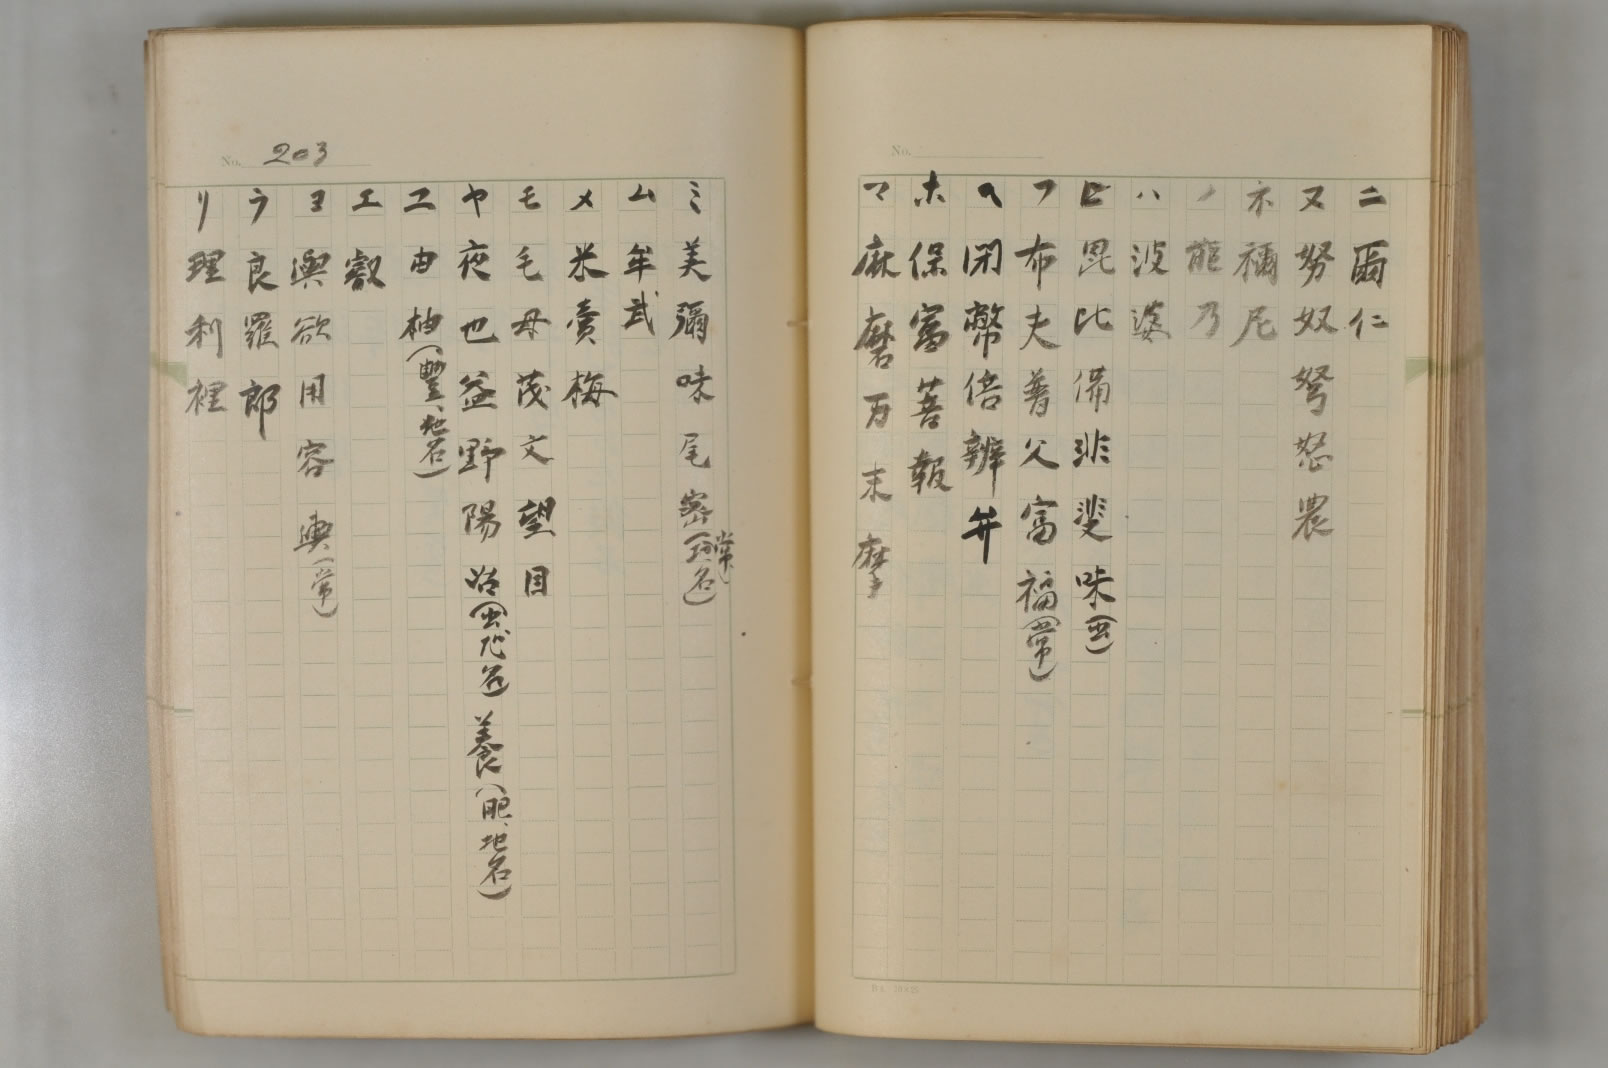 No.
ニ爾仁
ヌ努奴弩怒農
ネ禰尼
ノ能乃
ハ波婆
ヒ毘比備非斐味(出)
フ布夫普父富福(常)
ヘ閇幣倍辨弁
ホ保富菩報
マ麻磨万末摩
No. 203
ミ美彌味尾密(地名)常
ム牟武
メ米賣梅
モ毛母茂文望目
ヤ夜也益野陽(出地名)養(肥、地名)
ユ由柚(豐、地名)
エ叡
ヨ與欲用容輿(常)
ラ良羅郎
リ理利裡